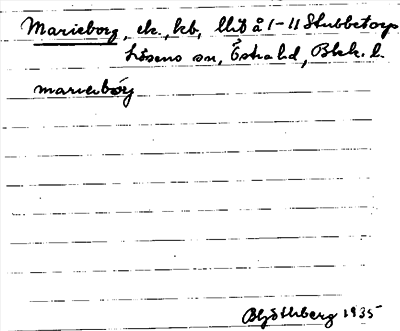 Marieborg, ek., kb, llit å 1-11 Stubbetorp
Lösens sn, Östra hd, Blek. l.
marieborg
1935